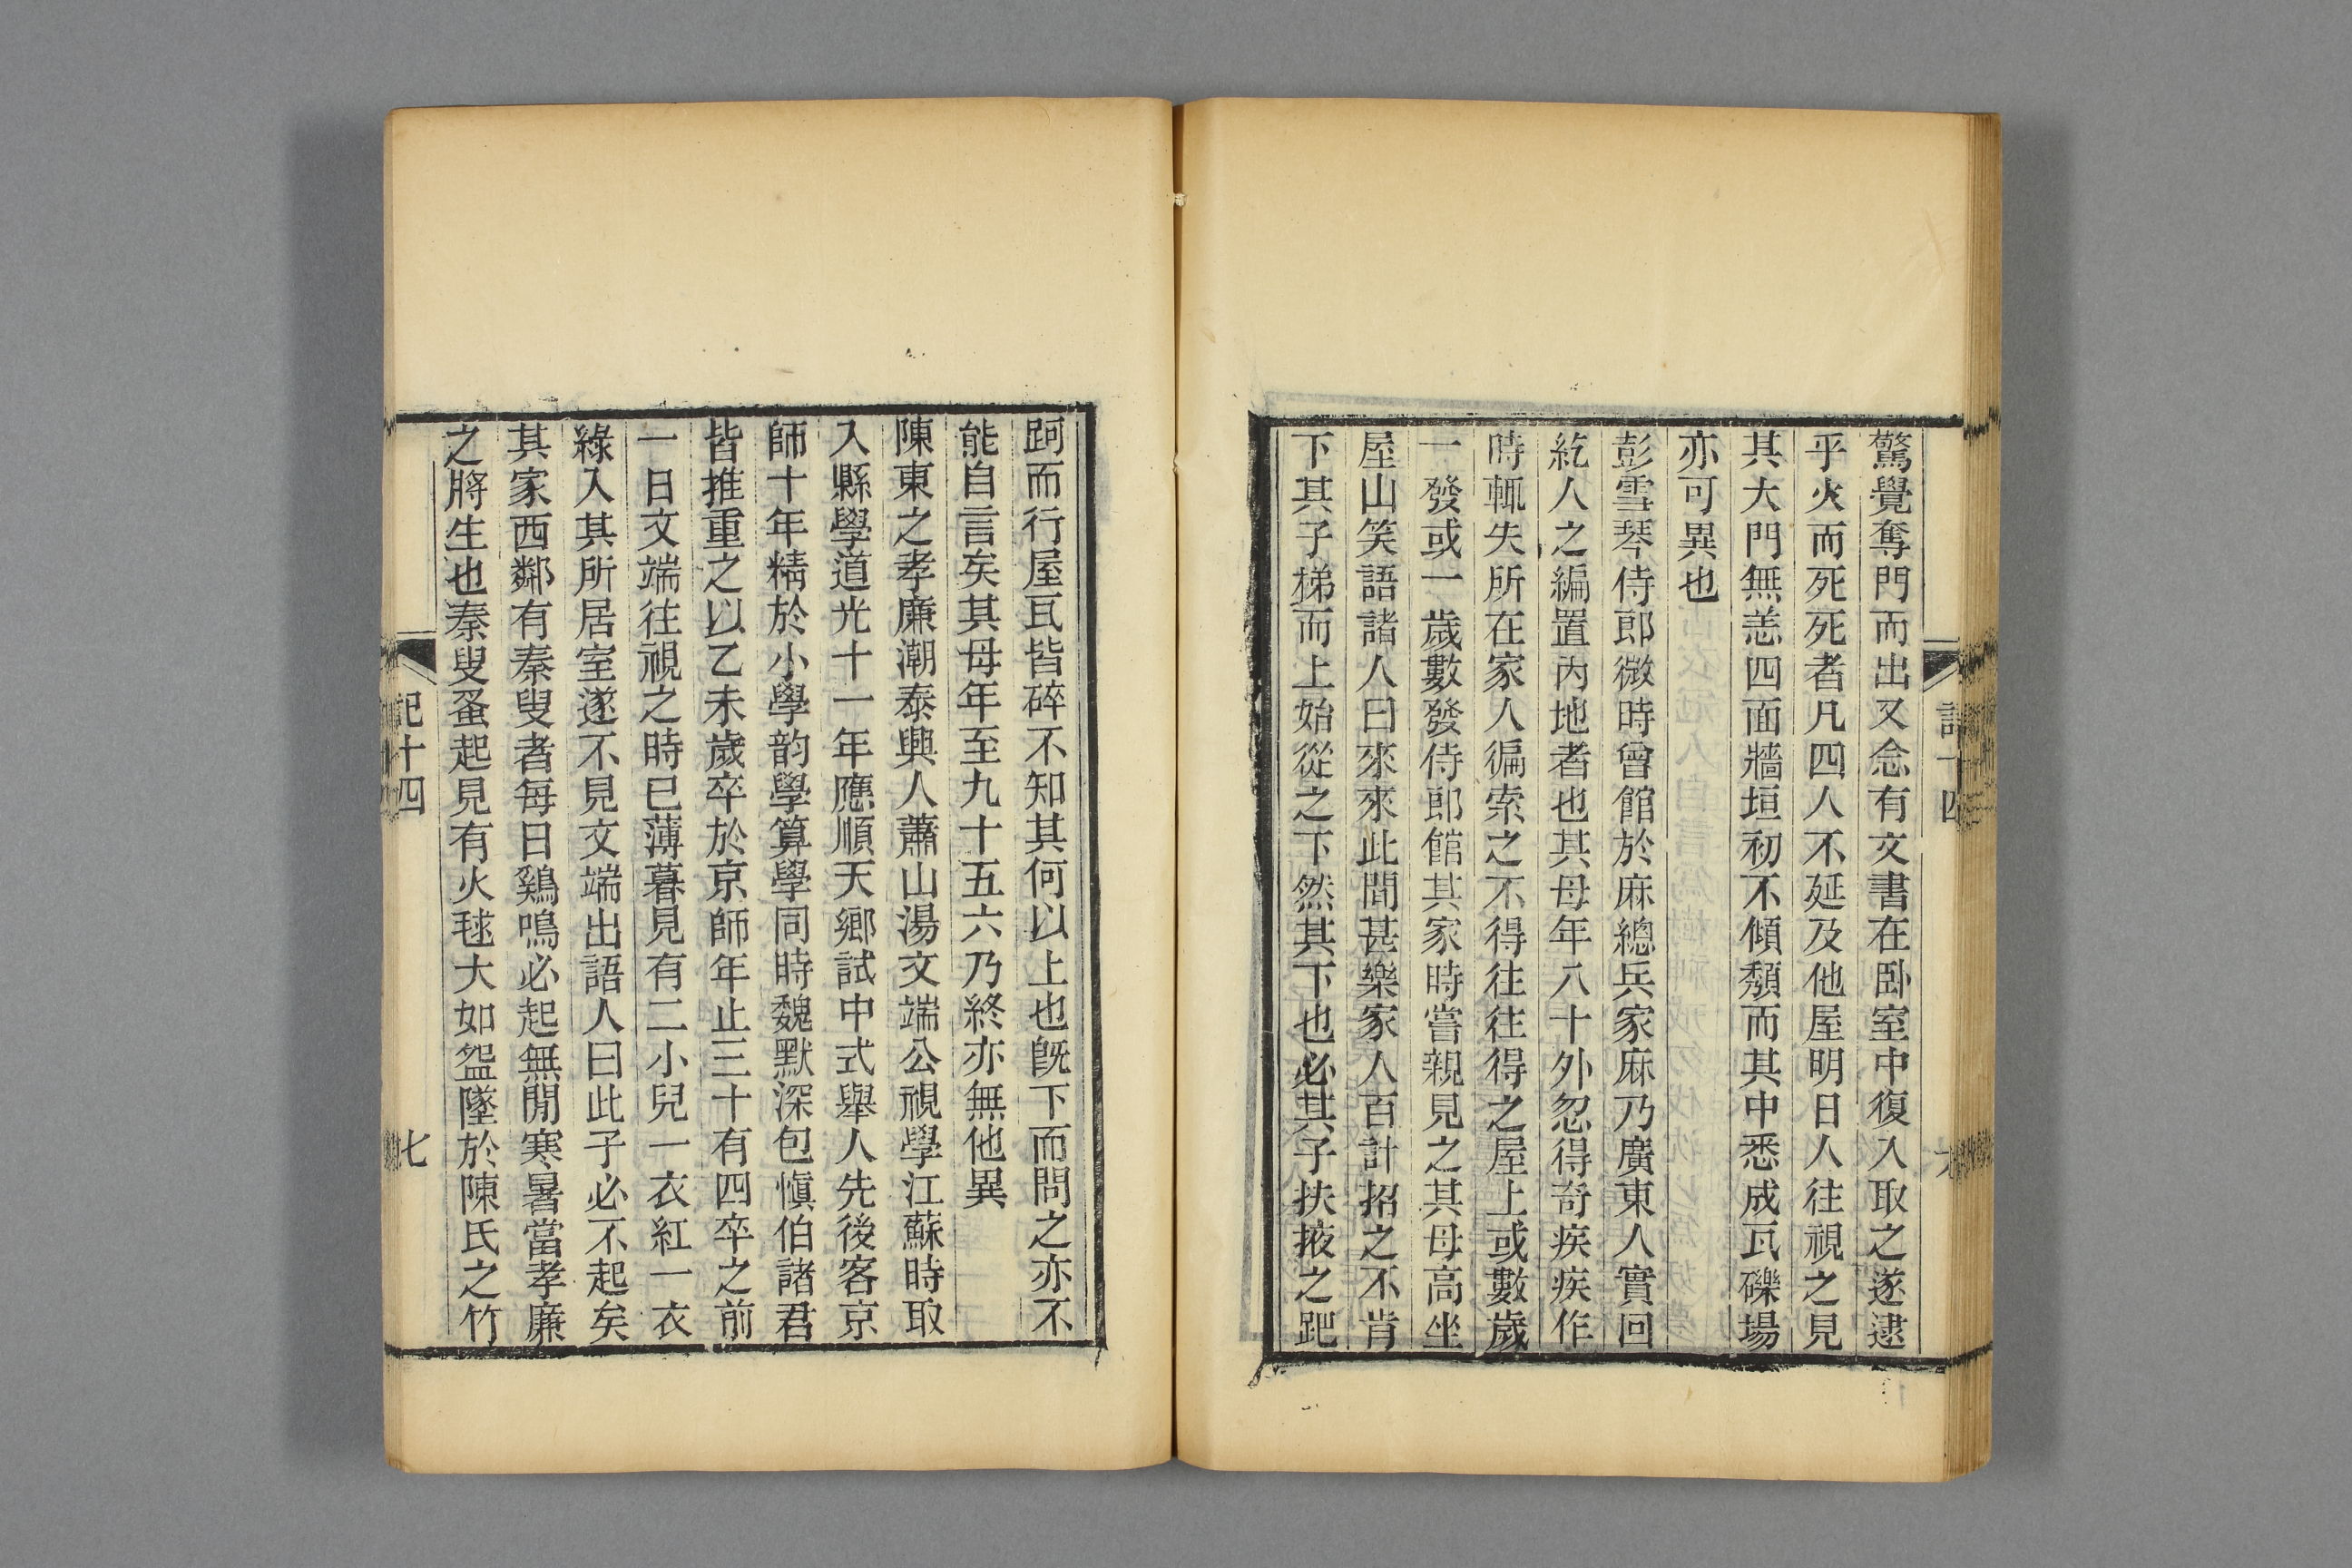 驚覺奪門而出又念有文書在卧室中復入取之遂逮
乎火而死死者凡四人不延及他屋明日人往視之見
其大門無恙四面牆垣初不傾頽而其中悉成瓦礫場
亦可異也
彭雪琴侍郎微時曾館於麻總兵家麻乃廣東人實回
紇人之編置內地者也其母年八十外忽得奇疾疾作
時輒失所在家人徧索之不得往往得之屋上或數歲
一發或一歲數發侍郎館其家時嘗親見之其母高坐
屋山笑語諸人曰來來此間甚樂家人百計招之不肯
下其子梯而上始從之下然其下也必其子扶掖之跁
跒而行屋瓦皆碎不知其何以上也旣下而問之亦不
能自言矣其母年至九十五六乃終亦無他異
陳東之孝廉潮泰興人蕭山湯文端公視學江蘇時取
入縣學道光十一年應順天鄉試中式舉人先後客京
師十年精於小學韵學算學同時魏默深包愼伯諸君
皆推重之以乙未歲卒於京師年止三十有四卒之前
一日文端往視之時已薄暮見有二小兒一衣紅一衣
綠入其所居室遂不見文端出語人曰此子必不起矣
其家西鄰有秦叟者每日鷄鳴必起無閒寒暑當孝廉
之將生也秦叟蚤起見有火毬大如盌墜於陳氏之竹
記十四
七